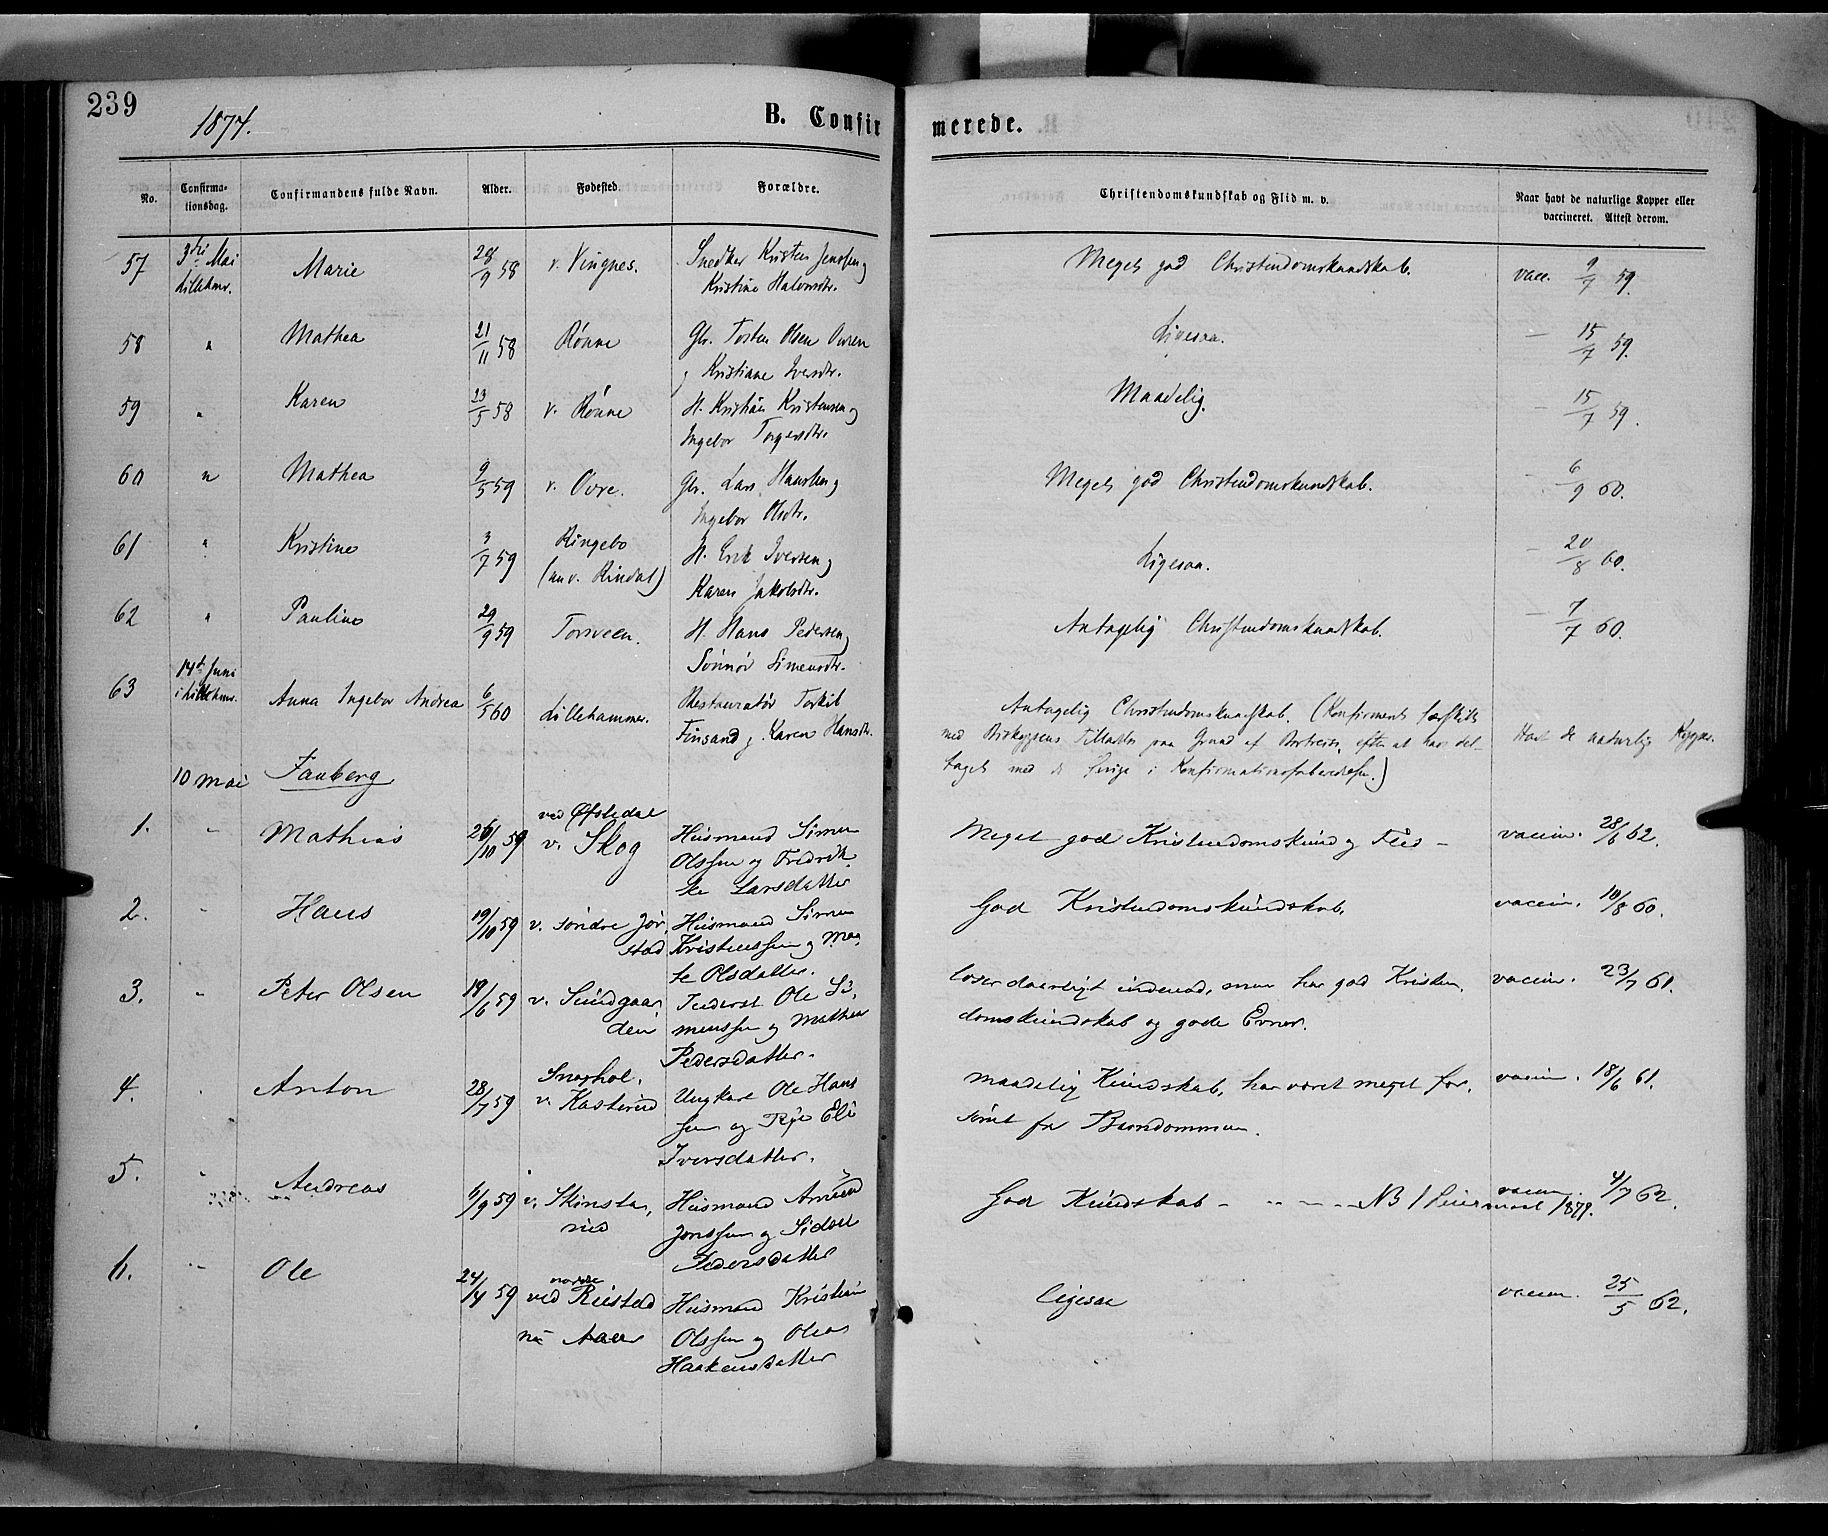 239
1874.
B. Confirmerede.
No. Confirmationsdag. Confirmandens fulde Navn. Alder. Fødested. Forældre. Christendomskundskab og Flid m. v. Naar havt de naturlige Kopper eller vaccineret. Attest derom.
57 3die Mai Lillehmr. Marie 28/9 58 v. Vingnes. Snedker Kristen Jensen og
Kristine Halvorsdtr. Meget god Christendomskundskab. vacc. 9/7 59.
58 " Mathea 21/11 58 Rønne Gbr. Torsten Olsen Ovren
og Kristiane Iversdtr. Ligesaa. — 15/7 59.
59 " Karen 23/5 58 v. Rønne H. Kristian Kristensen og
Ingebor Torgersdtr. Maadelig. — 15/7 59.
60 " Mathea 9/5 59 v. Ovre. Gbr. Lars Hansen og
Ingebor Olsdtr. Meget god Christendomskundskab. — 6/9 60.
61 " Kristine 3/7 59 Ringebo
(nu v. Rindal) H. Erik Iversen og
Karen Jakobsdtr. Ligesaa. — 20/8 60.
62 " Pauline 29/9 59 Torsveen. H. Hans Pedersen og
Sønnøv Simensdtr. Antagelig Christendomskundskab. — 7/7 60.
63 14de Juni i Lillehmr. Anna Ingebor Andrea 6/5 60 Lillehammer. Restauratør Torkil
Finsand og Karen Hansdtr. Antagelig Christendomskundskab. (Konfirmeret særskilt
med Biskoppens Tilladelse paa Grund af Bortreise, efter at have del-
taget med de øvrige i Konfirmationsforberedelsen.) Havt de naturlig Kopper.
10 Mai Faaberg
1. " Mathias 26/10 59 ved Øfstedal
v. Skog Husmand Simen
Olssen og Fredrik
ke Larsdatter Meget god Kristendomskund og Flid – vaccin. 28/6 62.
2. " Hans 19/10 59 v. søndre Jør
stad Husmand Simen
Kristenssen og Ma
te Olsdatter. God Kristendomskundskab. vaccin. 10/8 60.
3. " Peter Olsen 19/6 59 v. Sundgaar
den Inderst Ole Si
menssen og Mathea
Pedersdatter. læser daarligt indenad, men har god Kristen
domskundskab og gode Evner. vaccin. 23/7 61.
4. " Anton 28/7 59
v. Kasterud Ungkarl Ole Hans
sen og Pige Eli
Iversdatter. maadelig Kundskab, har været meget for
sømt fra Barndommen. vaccin. 18/6 61.
5. " Andreas 6/9 59 v. Skønsta Husmand
Jonssen og
Pedersdatter God Kundskab – NB 1879. vaccin. 4/7 62.
6. " Ole 24/4 59 nordre
ved Rustad
nu Aaen Husmand Kristian
Olssen og Olea
Haakensdatter ligesaa vaccin. 25/5 62.